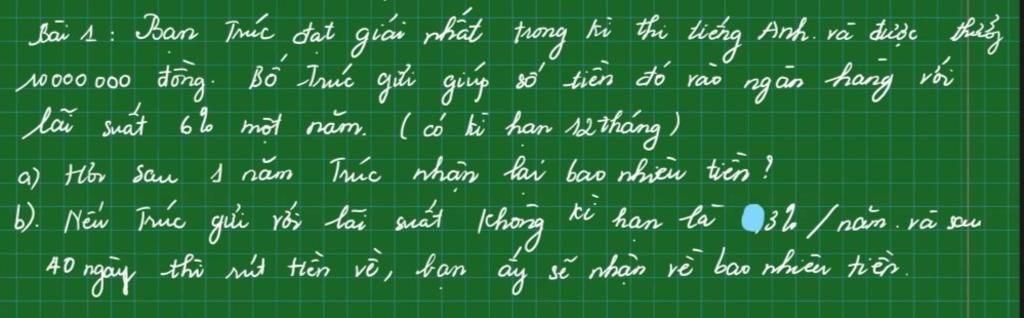 Bài 1 : Bạn Trúc đạt giải nhất trong kì thi tiếng Anh. và được thưởng
10000 000 đồng. Bố Trúc gửi giúp số tiền đó vào ngân hàng với
lãi suất 6% một năm. ( có kì hạn 12 tháng )
a) Hỏi sau 1 năm Trúc nhận lại bao nhiêu tiền ?
b). Nếu Trúc gửi với lãi suất không kì hạn là ,3% / năm. và sau
40 ngày thì rút tiền về, bạn ấy sẽ nhận về bao nhiêu tiền.